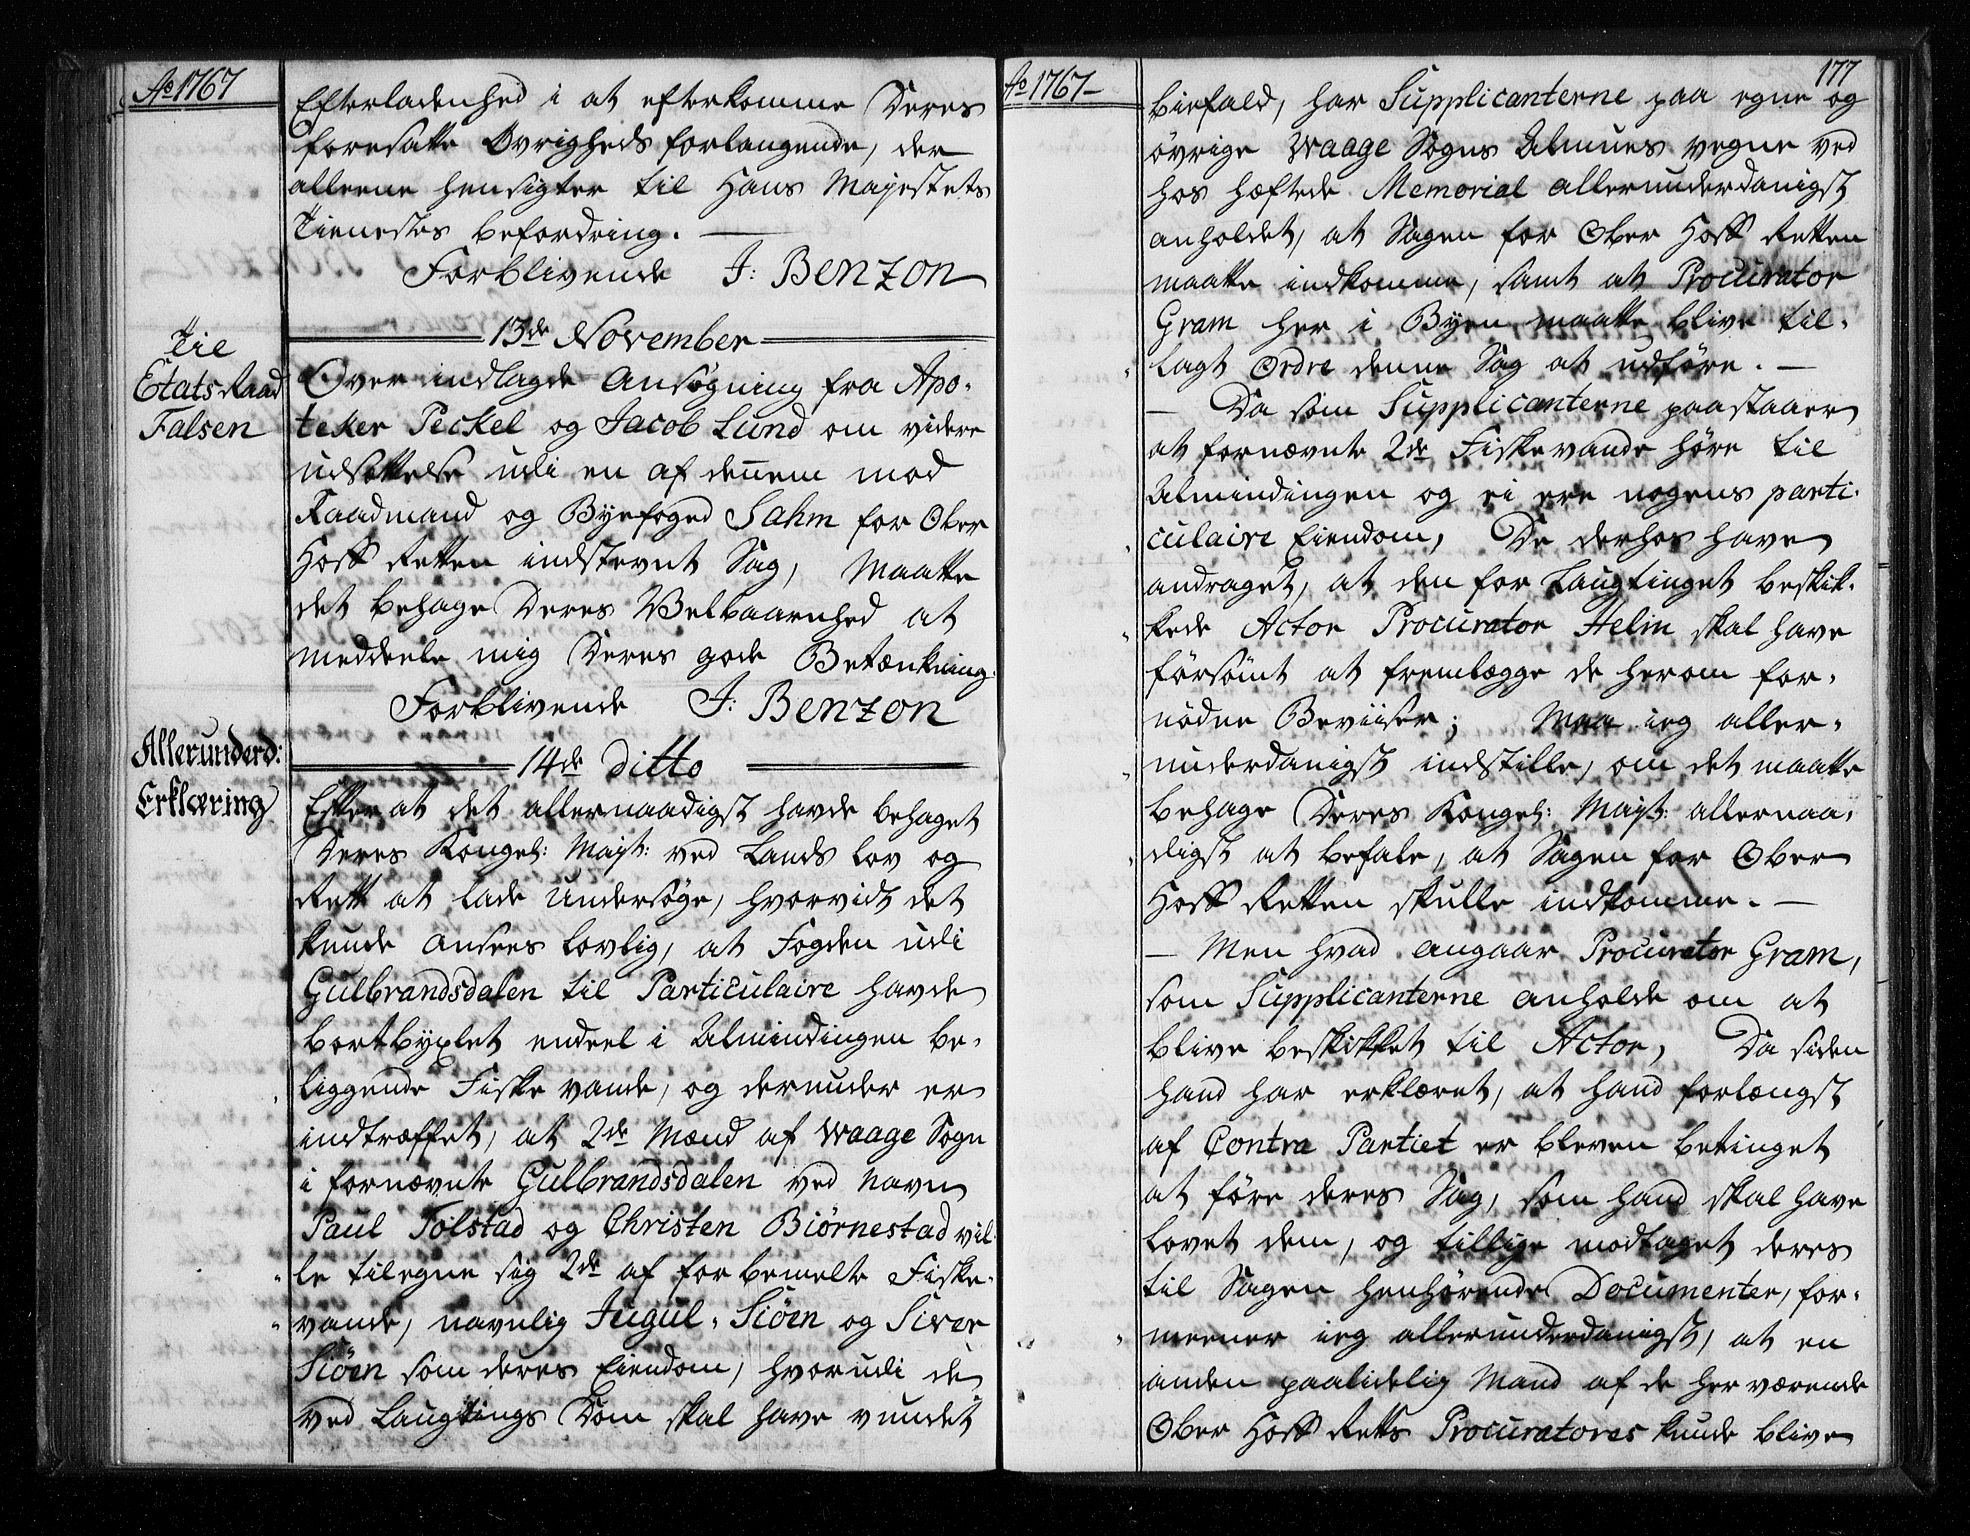 Ao 1767
Efterladenhed i at efterkomme Deres
foresatte Øvrigheds forlangende, der
alleene hensigter til Hans Majestets
Tienestes befordring. —
Forblivende J: Benzon
13de November
Til
Etats Raad
Falsen
Over indlagde Ansøgning fra Apo-
teker Peckel og Jacob Lund om videre
udsættelse udi en af dennem mod
Raadmand og Byefoged Sahm for Ober
Hoff Retten indstevnt Sag, Maatte
det behage Deres Velbaarenhed at
meddeele mig Deres gode Betænkning.
Forblivende J: Benzon
14de Ditto
Allerunderd:
Erklæring
Efter at det allernaadigst havde behaget
Deres Kongel: Mayt: ved Lands Lov og
Rett at lade undersøge, hvorvidt det
kunde ansees lovlig, at Fogden udi
Gulbrandsdalen til Particulaire havde
bortbyxlet endeel i Almindingen be-
liggende Fiske vande, og derunder er
indtræffet, at 2de Mænd af Waage Sogn
i fornævnte Gulbrandsdalen ved Navn
Paul Tolstad og Christen Biørnestad vil-
le tilegne sig 2de af forbemelte Fiske-
vande, navnlig Jugul-Siøen og Siver
Siøen som deres Eiendom, hvorudi de
ved Laugtings Dom skal have vundet
Ao 1767 —
177
biefald, har Supplicanterne paa egne og
øvrige Waage Sogns Almues vegne ved
hos hæftede Memorial allerunderdanigst
anholdet, at Sagen for Ober Hoff Retten
maatte indkomme, samt at Procurator
Gram her i Byen maatte blive til-
lagt Ordre denne Sag at udføre. —
— Da som Supplicanterne paastaaer
at fornævnte 2de Fiskevande høre til
Almindingen og ei ere nogens parti-
culaire Eiendom, De derhos have
andraget, at den for Laugtinget beskik-
kede Actor Procurator Helm skal have
forsømt at fremlægge de herom for-
nødne Beviiser; Maa ieg aller-
underdanigst indstille, om det maatte
behage Deres Kongel: Mayt: allernaa-
digst at befale, at Sagen for Ober
Hoff Retten skulle indkomme. —
— Men hvad angaar Procurator Gram,
som Supplicanterne anholde om at
blive beskikket til Actor, Da siden
hand har erklæret, at hand forlængst
af Contra Partiet er bleven betinget
at føre deres Sag, som hand skal have
lovet dem, og tillige modtaget deres
til Sagen henhørende Documenter, for-
meener ieg allerunderdanigst, at en
anden paalidelig Mand af de herværende
Ober Hoff Retts Procuratores kunde blive